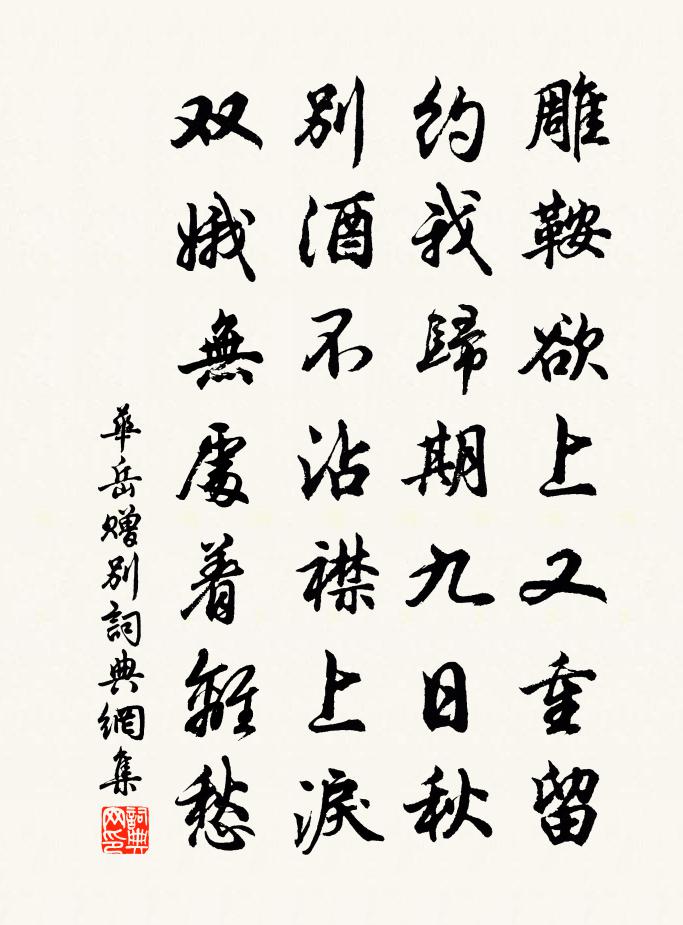 雕鞍欲上又重留
約我歸期九日秋
別酒不沾襟上淚
双娥無處着離愁
華岳贈別詞典網集
詞典网印